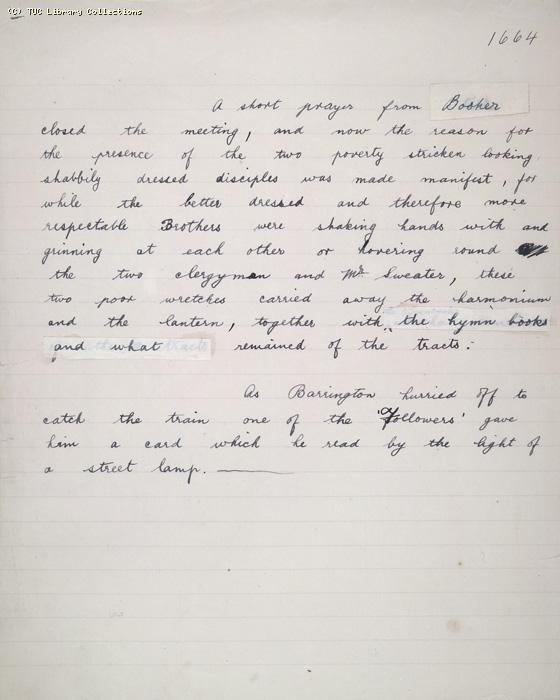 (C) TUC Library Collections
1664
A short prayer from Bosher
closed the meeting, and now the reason for
the presence of the two poverty stricken looking
shabbily dressed disciples was made manifest, for
while the better dressed and therefore more
respectable Brothers were shaking hands with and
grinning at each other or hovering round
the two clergyman and Mr Sweater, these
two poor wretches carried away the harmonium
and the lantern, together with the hymn books
and what remained of the tracts.
As Barrington hurried off to
catch the train one of the 'followers' gave
him a card which he read by the light of
a street lamp.